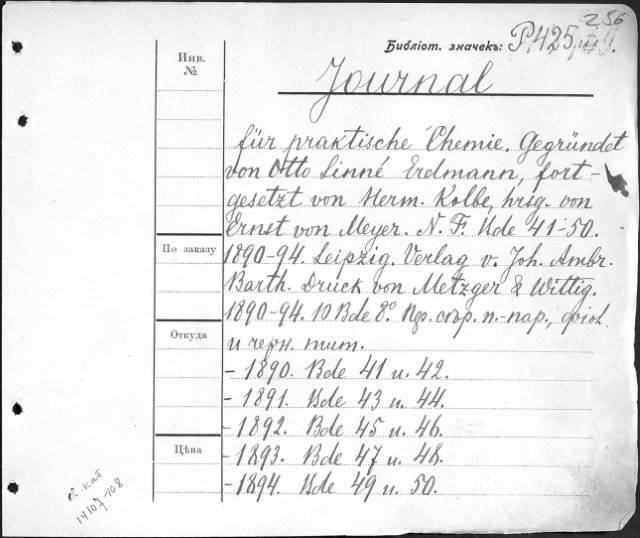 256
Библіот. значекъ: P.425
Инв.
№
Journal
für praktische Chemie. Gegründet
von Otto Linné Erdmann, fort-
gesetzt von Herm. Kolbe, hrsg. von
Ernst von Meyer. N. F. Bde 41-50.
По заказу
1890-94. Leipzig. Verlag v. Joh. Ambr.
Barth. Druck von Metzger & Wittig.
1890-94. 10 Bde 8°. п.-кар., фіол.
Откуда
и черн. тит.
- 1890. Bde 41 u. 42.
- 1891. Bde 43 u. 44.
- 1892. Bde 45 u. 46.
Цѣна
- 1893. Bde 47 u. 48.
- 1894. Bde 49 u. 50.
14107-108